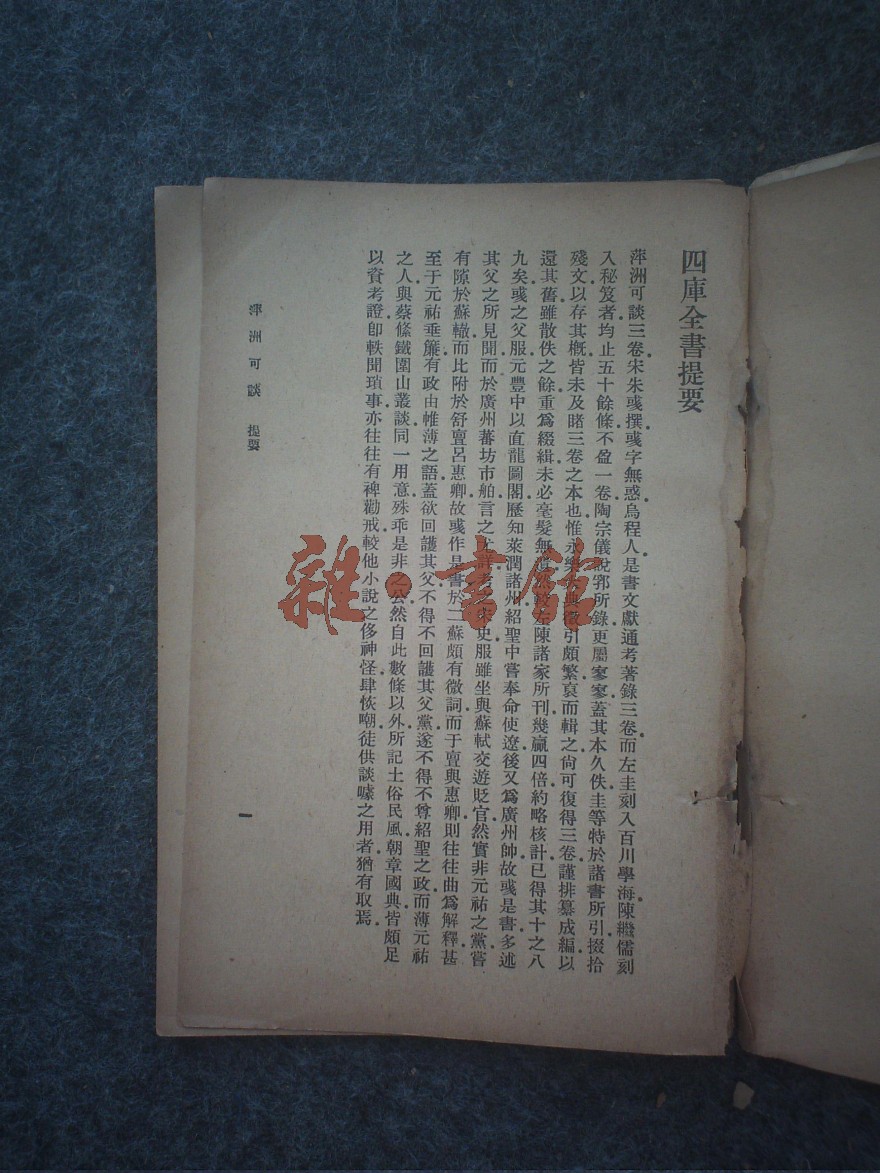 四庫全書提要
萍洲可談三卷宋朱彧撰彧字無惑烏程人是書文獻通考著錄三卷而左圭刻入百川學海陳繼儒刻
入秘笈者均止五十餘條不盈一卷陶宗儀說郛所錄更屬寥寥蓋其本久佚圭等特於諸書所引掇拾
殘文以存其概皆未及睹三卷之本也惟永樂大典徵引頗繁裒而輯之尙可復得三卷謹排纂成編以
還其舊雖散佚之餘重爲綴緝未必毫髮無遺然較左陳諸家所刊幾贏四倍約略核計已得其十之八
九矣彧之父服元豐中以直龍圖閣歷知萊潤諸州紹聖中嘗奉命使遼後又爲廣州帥故彧是書多述
其父之所見聞而於廣州蕃坊市舶言之尤詳考之宋史服雖坐與蘇軾交遊貶官然實非元祐之黨嘗
有隙於蘇轍而比附於舒亶呂惠卿故彧作是書於二蘇頗有微詞而于亶與惠卿則往往曲爲解釋甚
至于元祐垂簾有政由帷薄之語蓋欲回護其父不得不回護其父黨遂不得不尊紹聖之政而薄元祐
之人與蔡絛鐵圍山叢談同一用意殊乖是非之公然自此數條以外所記土俗民風朝章國典皆頗足
以資考證卽軼聞瑣事亦往往有裨勸戒較他小說之侈神怪肆恢嘲徒供談噱之用者猶有取焉
萍洲可談 提要
一
雜·書館